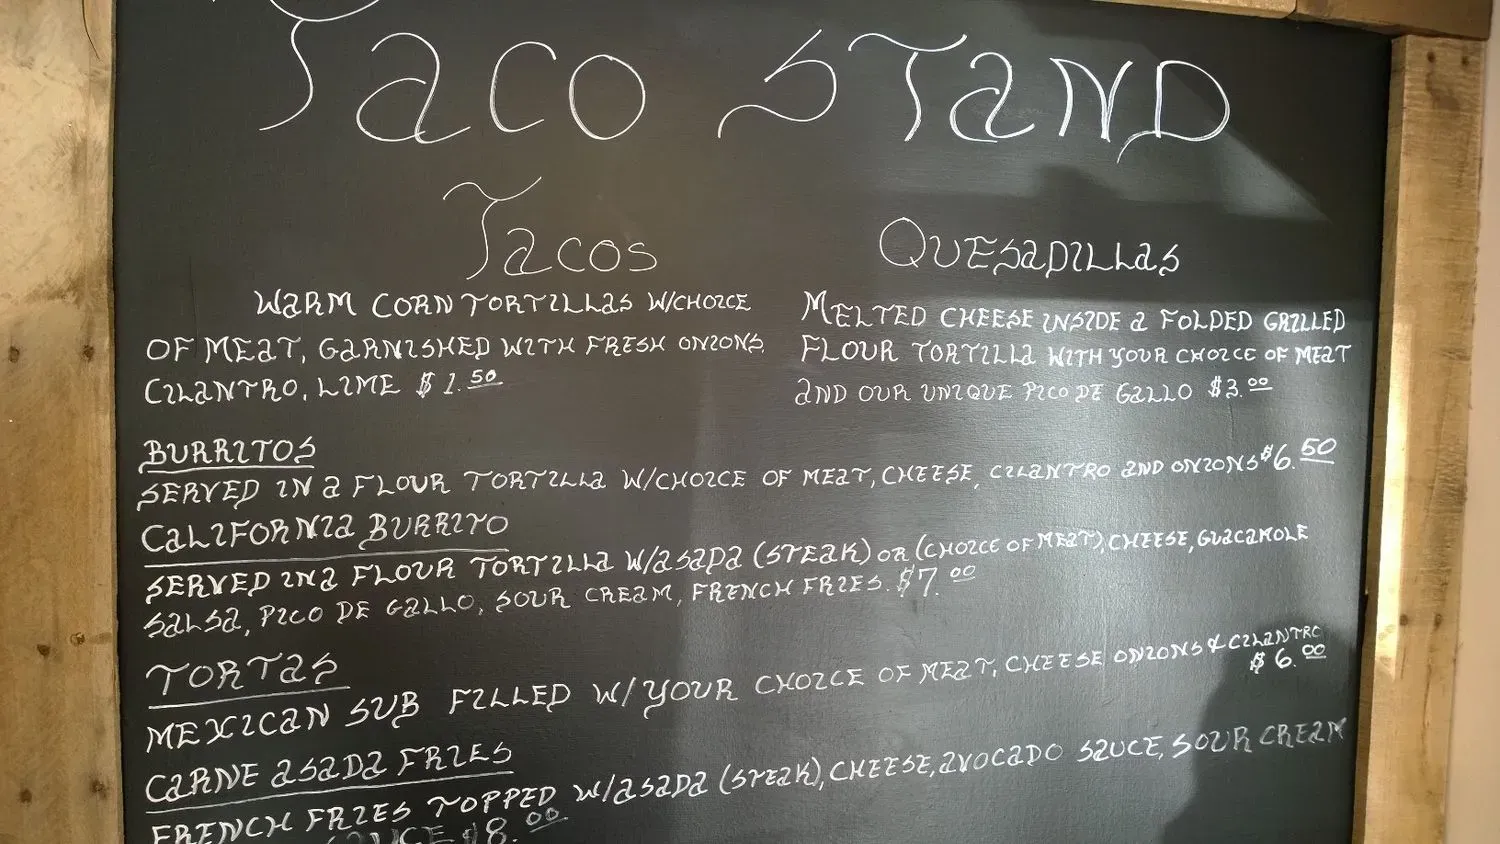 TACO STAND
TACOS
WARM CORN TORTILLAS W/CHOICE
OF MEAT, GARNISHED WITH FRESH ONIONS,
CILANTRO, LIME $1.50
QUESADILLAS
MELTED CHEESE INSIDE A FOLDED GRILLED
FLOUR TORTILLA WITH YOUR CHOICE OF MEAT
AND OUR UNIQUE PICO DE GALLO $3.00
BURRITOS
SERVED IN A FLOUR TORTILLA W/CHOICE OF MEAT, CHEESE, CILANTRO AND ONIONS $6.50
CALIFORNIA BURRITO
SERVED IN A FLOUR TORTILLA W/ASADA (STEAK) OR (CHOICE OF MEAT), CHEESE, GUACAMOLE
SALSA, PICO DE GALLO, SOUR CREAM, FRENCH FRIES. $7.00
TORTAS
MEXICAN SUB FILLED W/ YOUR CHOICE OF MEAT, CHEESE ONIONS & CILANTRO
$6.00
CARNE ASADA FRIES
FRENCH FRIES TOPPED W/ASADA (STEAK), CHEESE, AVOCADO SAUCE, SOUR CREAM
SAUCE $8.00